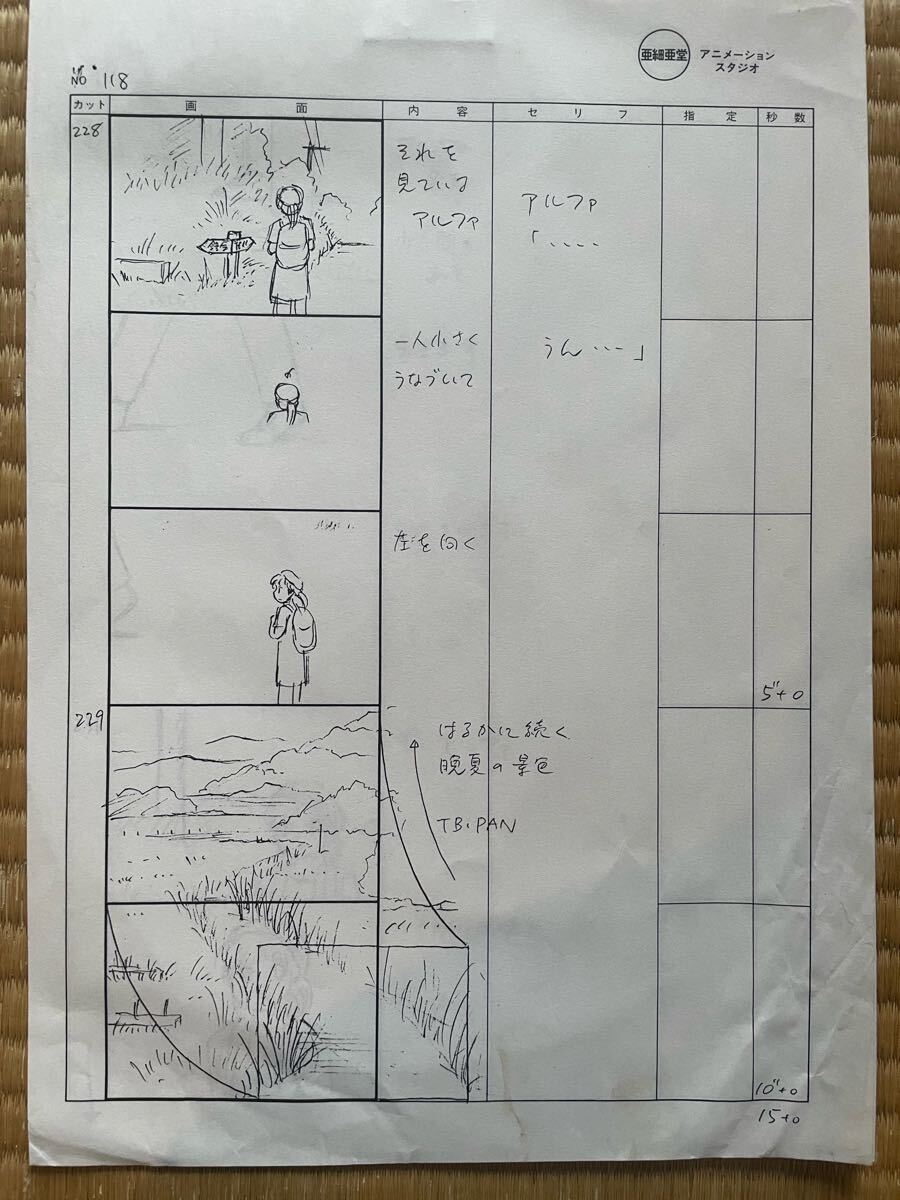 亜細亜堂
アニメーション
スタジオ
NO 118
カット 画面 内容 セリフ 指定 秒数
228
それを
見ている
アルファ
アルファ
「....
一人小さく
うなづいて
うん...」
左を向く
5"+0
229
はるかに続く
晩夏の景色
TB.PAN
10"+0
15+0